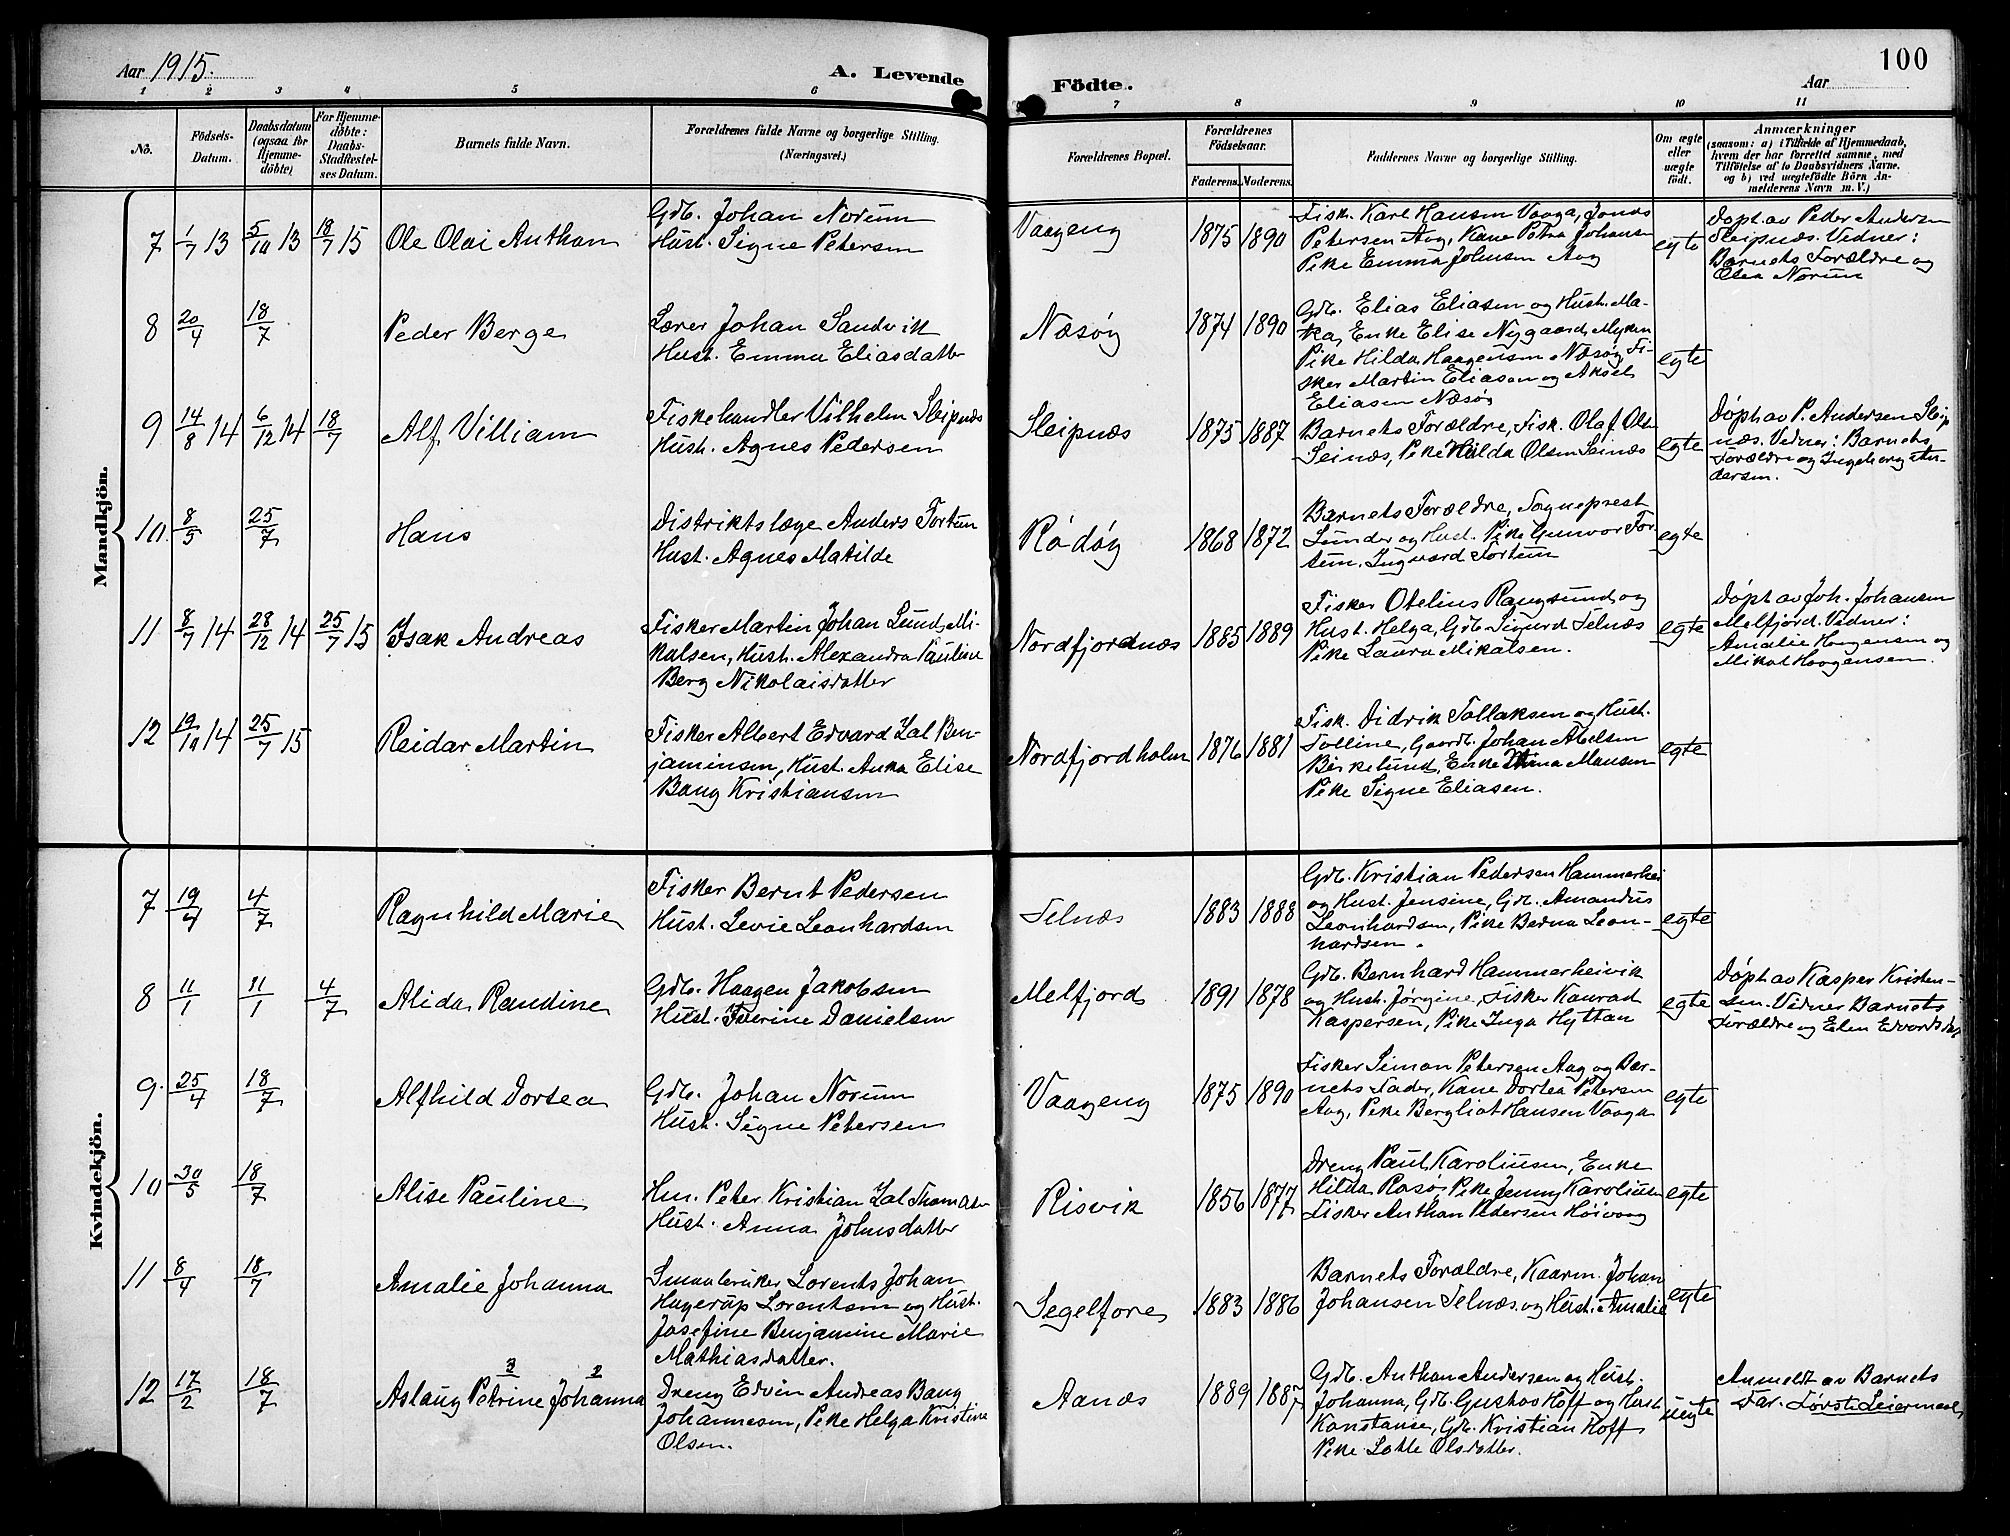 Aar 1915.
A. Levende
Födte.
Aar
100
1 2 3 4 5 6 7 8 9 10 11
No.
Födsels-
Datum.
Daabsdatum
(ogsaa for
Hjemme-
döbte)
For Hjemme-
döbte:
Daabs-
Stadfæstel-
ses Datum.
Barnets fulde Navn.
Forældrenes fulde Navne og borgerlige Stilling.
(Næringsvei.)
Forældrenes Bopæl.
Forældrenes
Födselsaar.
Faderens. Moderens.
Faddernes Navne og borgerlige Stilling.
Om ægte
eller
uægte
födt.
Anmærkninger
(saasom: a) i Tilfælde af Hjemmedaab,
hvem der har forrettet samme, med
Tilföielse af to Daabsvidners Navne.
og b) ved uægtefödte Börn An-
melderens Navn m. V.)
Mandkjön.
7 1/7 13 5/10 13 18/7 15 Ole Olai Anthon
Gdb. Johan Norum
Hust. Signe Petersen
Vaageng 1875 1890
Fisk. Karl Hansen Vaaga, Jonas
Petersen Aag, Kone Petra Johansen
Pike Emma Johnsen Aag
egte
Döpt av Peder Andersen
Sleipnæs. Vidner:
Barnets Forældre og
Olea Norum
8 20/4 18/7 Peder Berge
Lærer Johan Sandvik
Hust. Emma Eliasdatter
Næsøy 1874 1890
Gdb. Elias Eliasen og Hust. Ma-
rka, Enke Elise Nygaard Myken
Pike Hilda Haagensen Næsøy, Fi-
sker Martin Eliasen og Aksel
Eliasen Næsøy
egte
9 14/8 14 6/12 14 18/7 Alf Villiam
Fiskehandler Vilhelm Sleipnæs
Hust. Agnes Pedersen
Sleipnæs 1875 1887
Barnets Forældre, Fisk. Olaf Olsen
Seinæs, Pike Hilda Olsen Seinæs
egte
Döpt av P. Andersen Sleip
næs. Vidner: Barnets
Forældre og Ingeborg An-
dersen.
10 8/5 25/7 Hans
Distriktslæge Anders Fortun
Hust. Agnes Matilde
Rödöy 1868 1872
Barnets Forældre, Sogneprest
Sunder og Hust. Pike Gunvor For-
tun. Ingvard Fortun
egte
11 8/7 14 28/12 14 25/7 15 Isak Andreas
Fisker Martin Johan Lund Mi-
kalsen, Hust. Alexandra Pauline
Berg Nikolaisdatter
Nordfjordnæs 1885 1889
Fisker Otelius Rangsund og
Hust. Helga, Gdb. Sigurd Selnæs
Pike Laura Mikalsen.
egte
Döpt av Joh. Johansen
Melfjord. Vidner:
Amalie Haagensen og
Mikal Haagensen.
12 19/10 14 25/7 15 Reidar Martin
Fisker Albert Edvard Zal Ben-
jaminsen, Hust. Anna Elise
Bang Kristiansen
Nordfjordholm 1876 1881
Fisk. Didrik Tollaksen og Hust.
Tolline, Gaardb. Johan Abelsen
Birkelund, Enke Nina Monsen
Pike Signe Eliasen.
egte
Kvindekjön.
7 19/4 4/7 Ragnhild Marie
Fisker Bernt Pedersen
Hust. Levie Leonhardsen
Selnæs 1883 1888
Gdb. Kristian Pedersen Hammerhei
og Hust. Jensine, Gdb. Amandus
Leonhardsen, Pike Berna Leon-
hardsen.
egte
8 11/1 11/1 4/7 Alida Randine
Gdb. Haagen Jakobsen
Hust. Iverine Danielsen
Melfjord 1891 1878
Gdb. Bernhard Hammerheivik
og Hust. Jørgine, Fisker Konrad
Kaspersen, Pike Inga Hyttan
egte
Döpt av Kasper Kristen-
sen. Vidner Barnets
Forældre og Elen Edvardsdat
9. 25/4 18/7 Alfhild Dortea
Gdb. Johan Norum
Hust. Signe Petersen
Vaageng 1875 1890
Fisker Simon Petersen Aag og Bar-
nets Fader, Kone Dortea Petersen
Aag, Pike Bergliot Hansen Vaaga
egte
10 30/5 18/7 Alise Pauline
Hm. Peter Kristian Zal Thomassen
Hust. Anna Johnsdatter
Risvik 1856 1877
Dreng Paul Karoliusen, Enke
Hilda Rasö, Pike Jenny Karoliusen
Fisker Anthon Pedersen Höivaag
egte
11 8/4 18/7 Amalie Johanna
Smaabruker Lorents Johan
Hagerup Lorentsen og Hust.
Josefine Benjamine Marie
Mathiasdatter.
Segelfore 1883 1886
Barnets Forældre, Kaarm. Johan
Johansen Selnæs og Hust. Amalie
egte
12 17/2 18/7 Aslaug Petrine Johanna
3 2
Dreng Edvin Andreas Bang
Johannesen, Pike Helga Kristine
Olsen.
Aanæs 1889 1887
Gdb. Anthon Andersen og Hust.
Johanna, Gdb. Gustav Hoff og Hust
Konstanse, Gdb. Kristian Hoff
Pike Lotte Olsdatter.
uegte
Anmeldt av Barnets
Far. Første Leiermaal